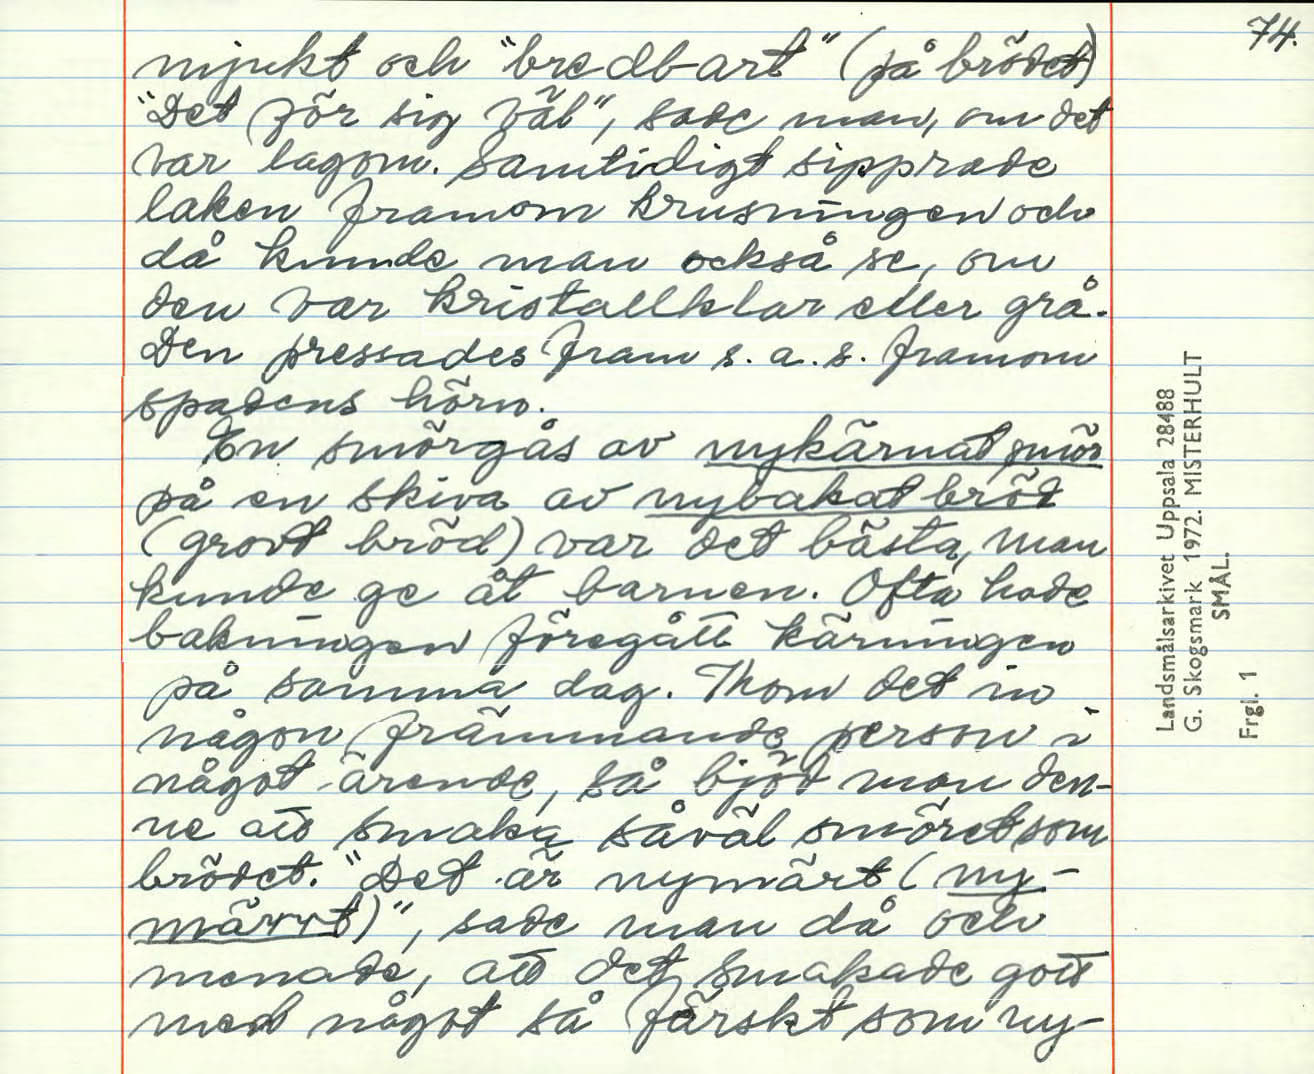 74.
mjukt och "bredbart" (på brödet)
"Det för sig väl", sade man, om det
var lagom. Samtidigt sipprade
laken framom krusningen och
då kunde man också se, om
den var kristallklar eller grå.
Den pressades fram s. a. s. framom
spadens hörn.
En smörgås av nykärnat smör
på en skiva av nybakat bröd
(grovt bröd) var det bästa, man
kunde ge åt barnen. Ofta hade
bakningen föregått kärningen
på samma dag. Kom det in
någon främmande person i
något ärende, så bjöd man den-
ne att smaka såväl smöret som
brödet. "Det är nymärt (ny-
märrt)", sade man då och
menade, att det smakade gott
med något så färskt som ny-
Landsmålsarkivet Uppsala 28488
G. Skogsmark 1972. MISTERHULT
SMÅL.
Frgl. 1